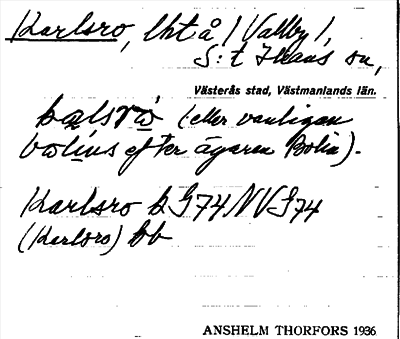 Karlsro, lht å / Vallby /,
S:t Ilians sn,
Västerås stad, Västmanlands län.
kalsrò (eller vanligan
bolíns efter ägaren Bolin).
Karlsro k G74 NV S74
(Karlsro) bb
ANSHELM THORFORS 1936